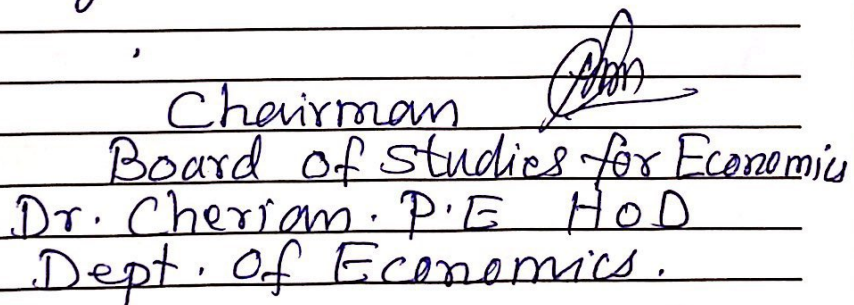 Chairman
Board of Studies for Economics
Dr. Cherian. P.E HOD
Dept. Of Economics.